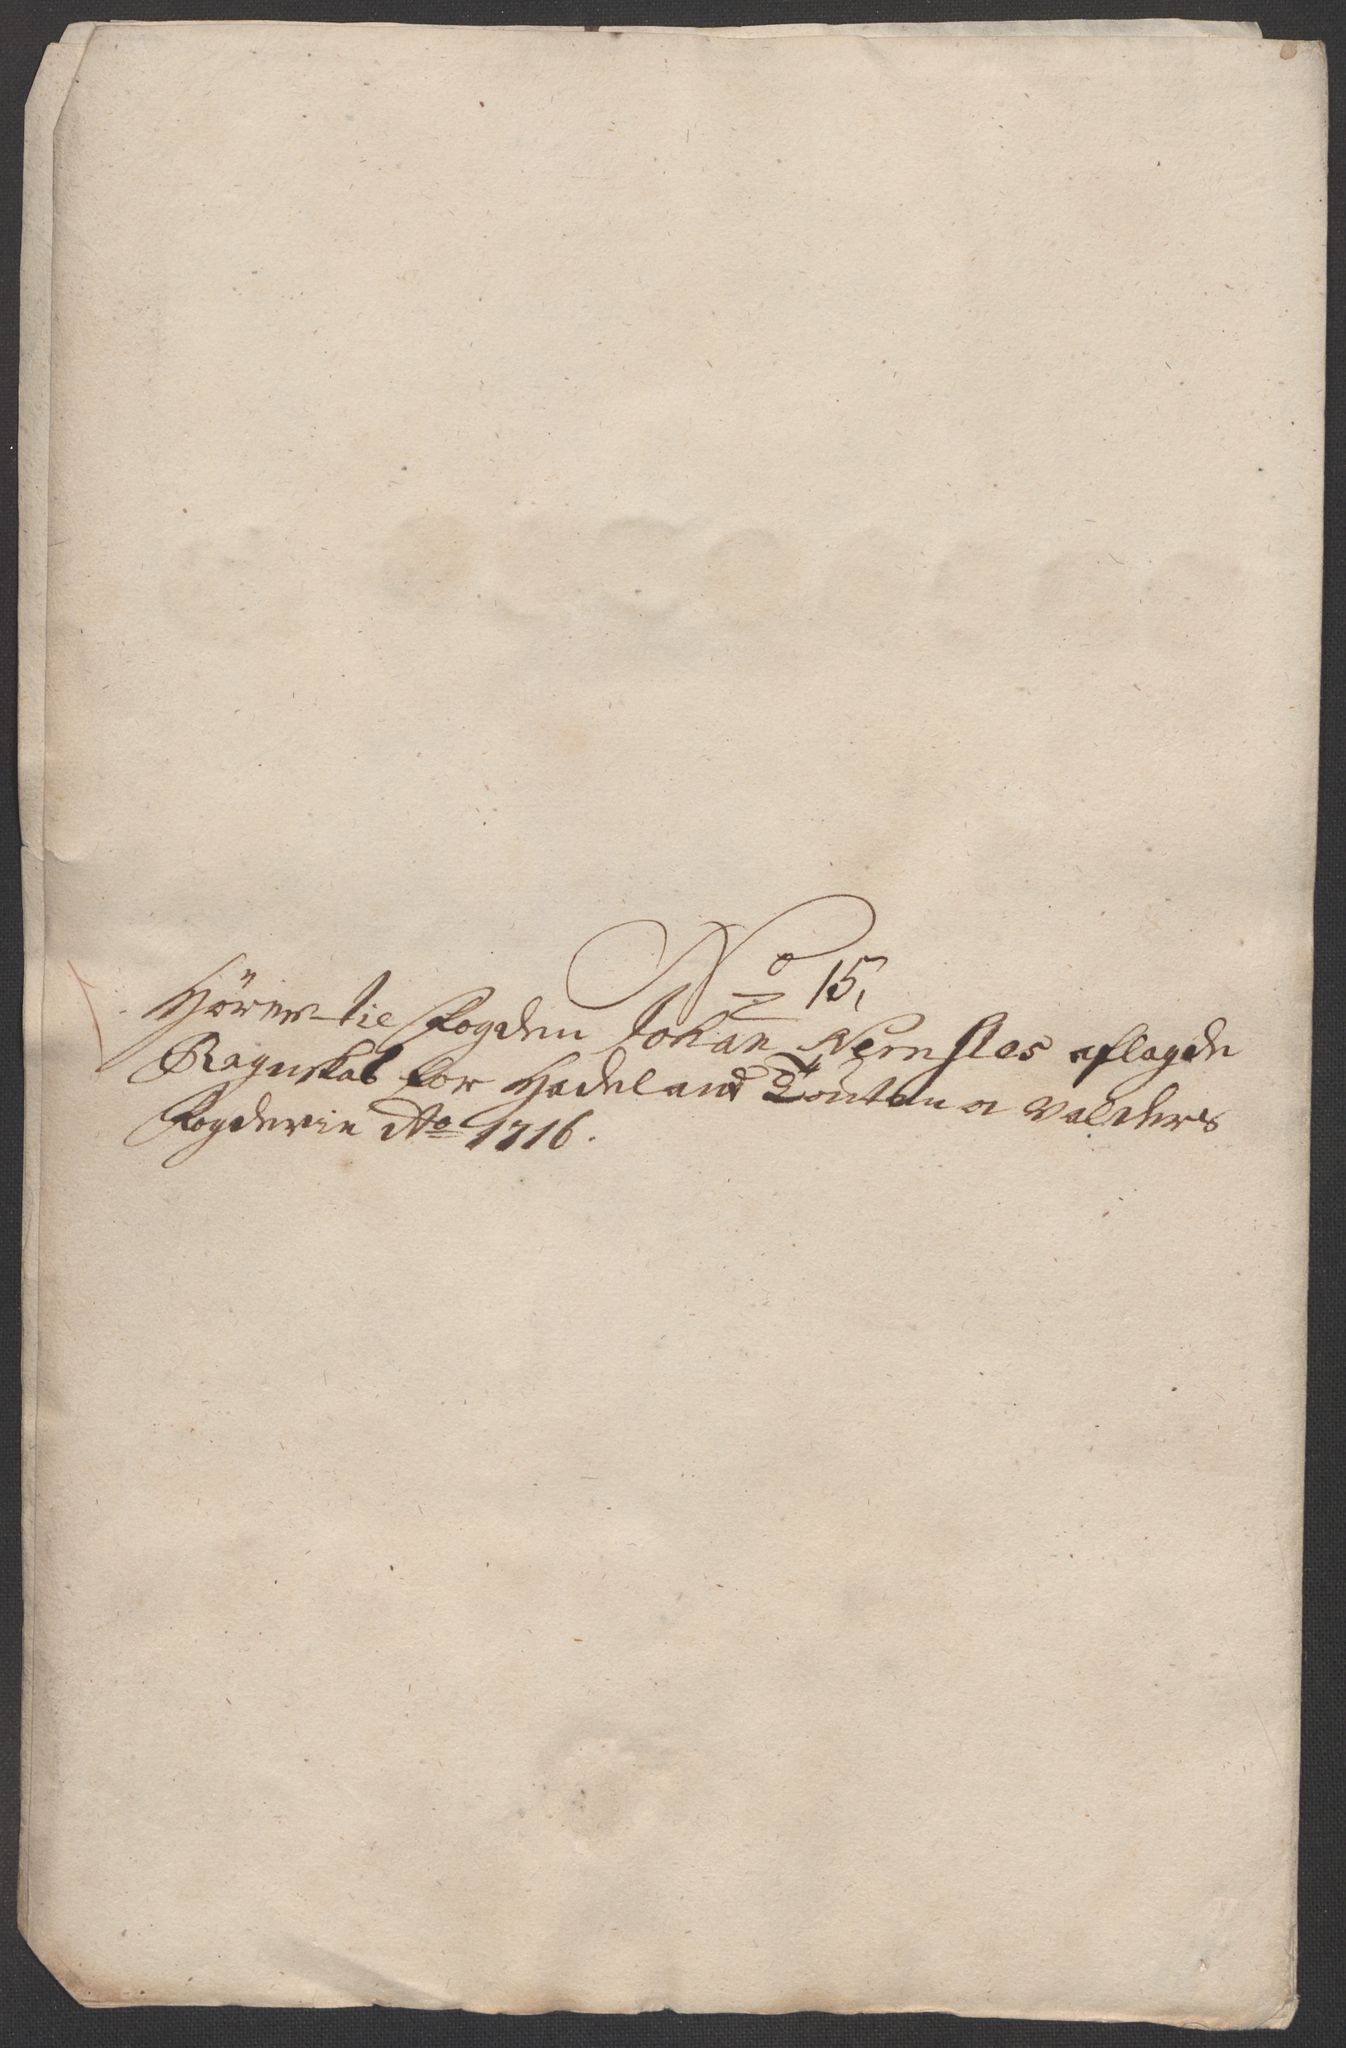 No 15,
Hörer til Fogden Johan Nernstes aflagde
Ragnskab for Hadeland Touten o Valders
Fogderie Ao 1716.